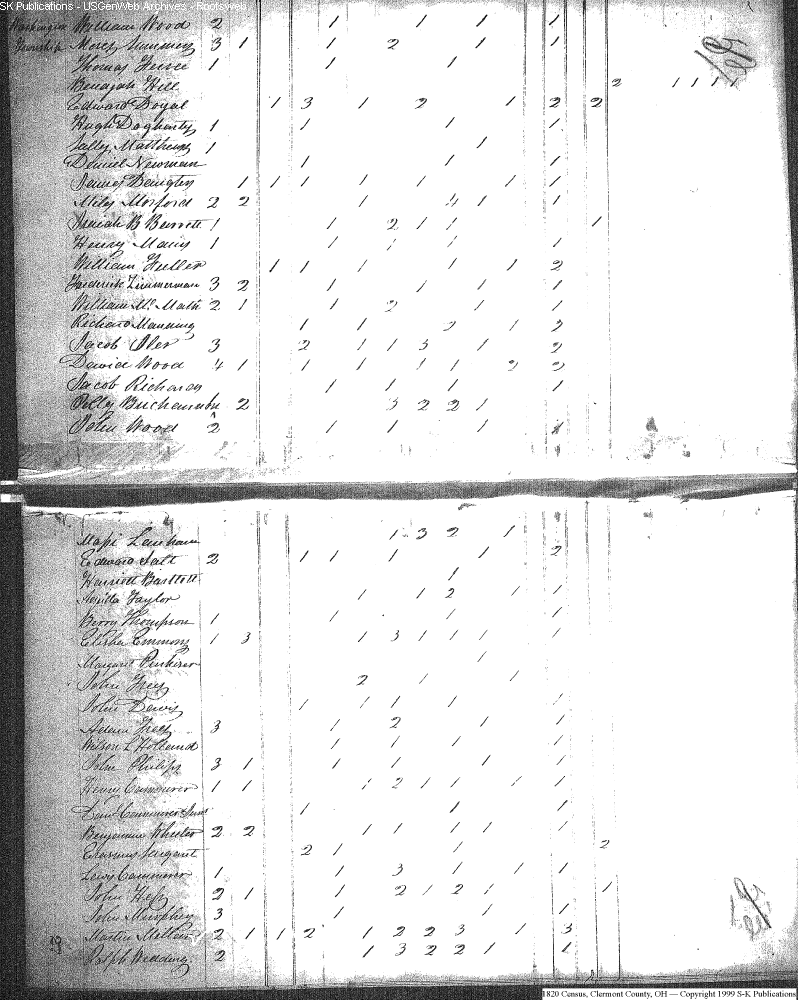 SK Publications - USGenWeb Archives - Rootsweb
Washington William Wood 2 1 1 1 1
Township 3 1 1 2 1 1
Thomas 1 1 1
Benajah Hill 2 1 1 1 1
Edward Doyal 1 3 1 2 1 2 2
Hugh Dogherty 1 1 1 1
Sally Matthews 1 1
Daniel Newman 1 1 1
James 1 1 1 1 1 1 1 1
Miles Morford 2 2 1 4 1 1
B 1 1 2 1 1 1
Henry 1 1 1 1 1
William Fuller 1 1 1 1 1 2
Frederick Zimmerman 3 2 1 1 1 1
William Mc Math 2 1 1 2 1 1
Richard Manning 1 1 2 1 2
Jacob 3 2 1 1 3 1 2
David Wood 4 1 1 1 1 1 1 2 2
Jacob Richards 1 1 1 1
Polly Buchannan 2 3 2 2 1
John Wood 2 1 1 1 1
1 3 2 1
Edward 2 1 1 1 1 2
Henriett Bartlett 1
Taylor 1 1 2 1 1
Berry Thompson 1 1 1 1
Elisha Emmons 1 3 1 3 1 1 1 1
Margaret 1
John Frey 2 1 1
John Davis 1 1 1 1 1
Adam Frey 3 1 2 1 1
Wilson L Holland 1 1 1 1
John Philips 3 1 1 1 1 1
Henry Cammerer 1 1 1 2 1 1 1 1
1 1 1
Benjamin Wheeler 2 2 1 1 1 1 1
Erasmus Sergant 2 1 1 2
Lewis Cammerer 1 1 3 1 1 1
John 2 1 1 2 1 2 1 1
John Murphey 3 1 1 1
Martin 2 1 1 2 1 2 2 3 1 3
Ralph Wedding 2 1 3 2 2 1 1
1820 Census, Clermont County, OH — Copyright 1999 S-K Publications